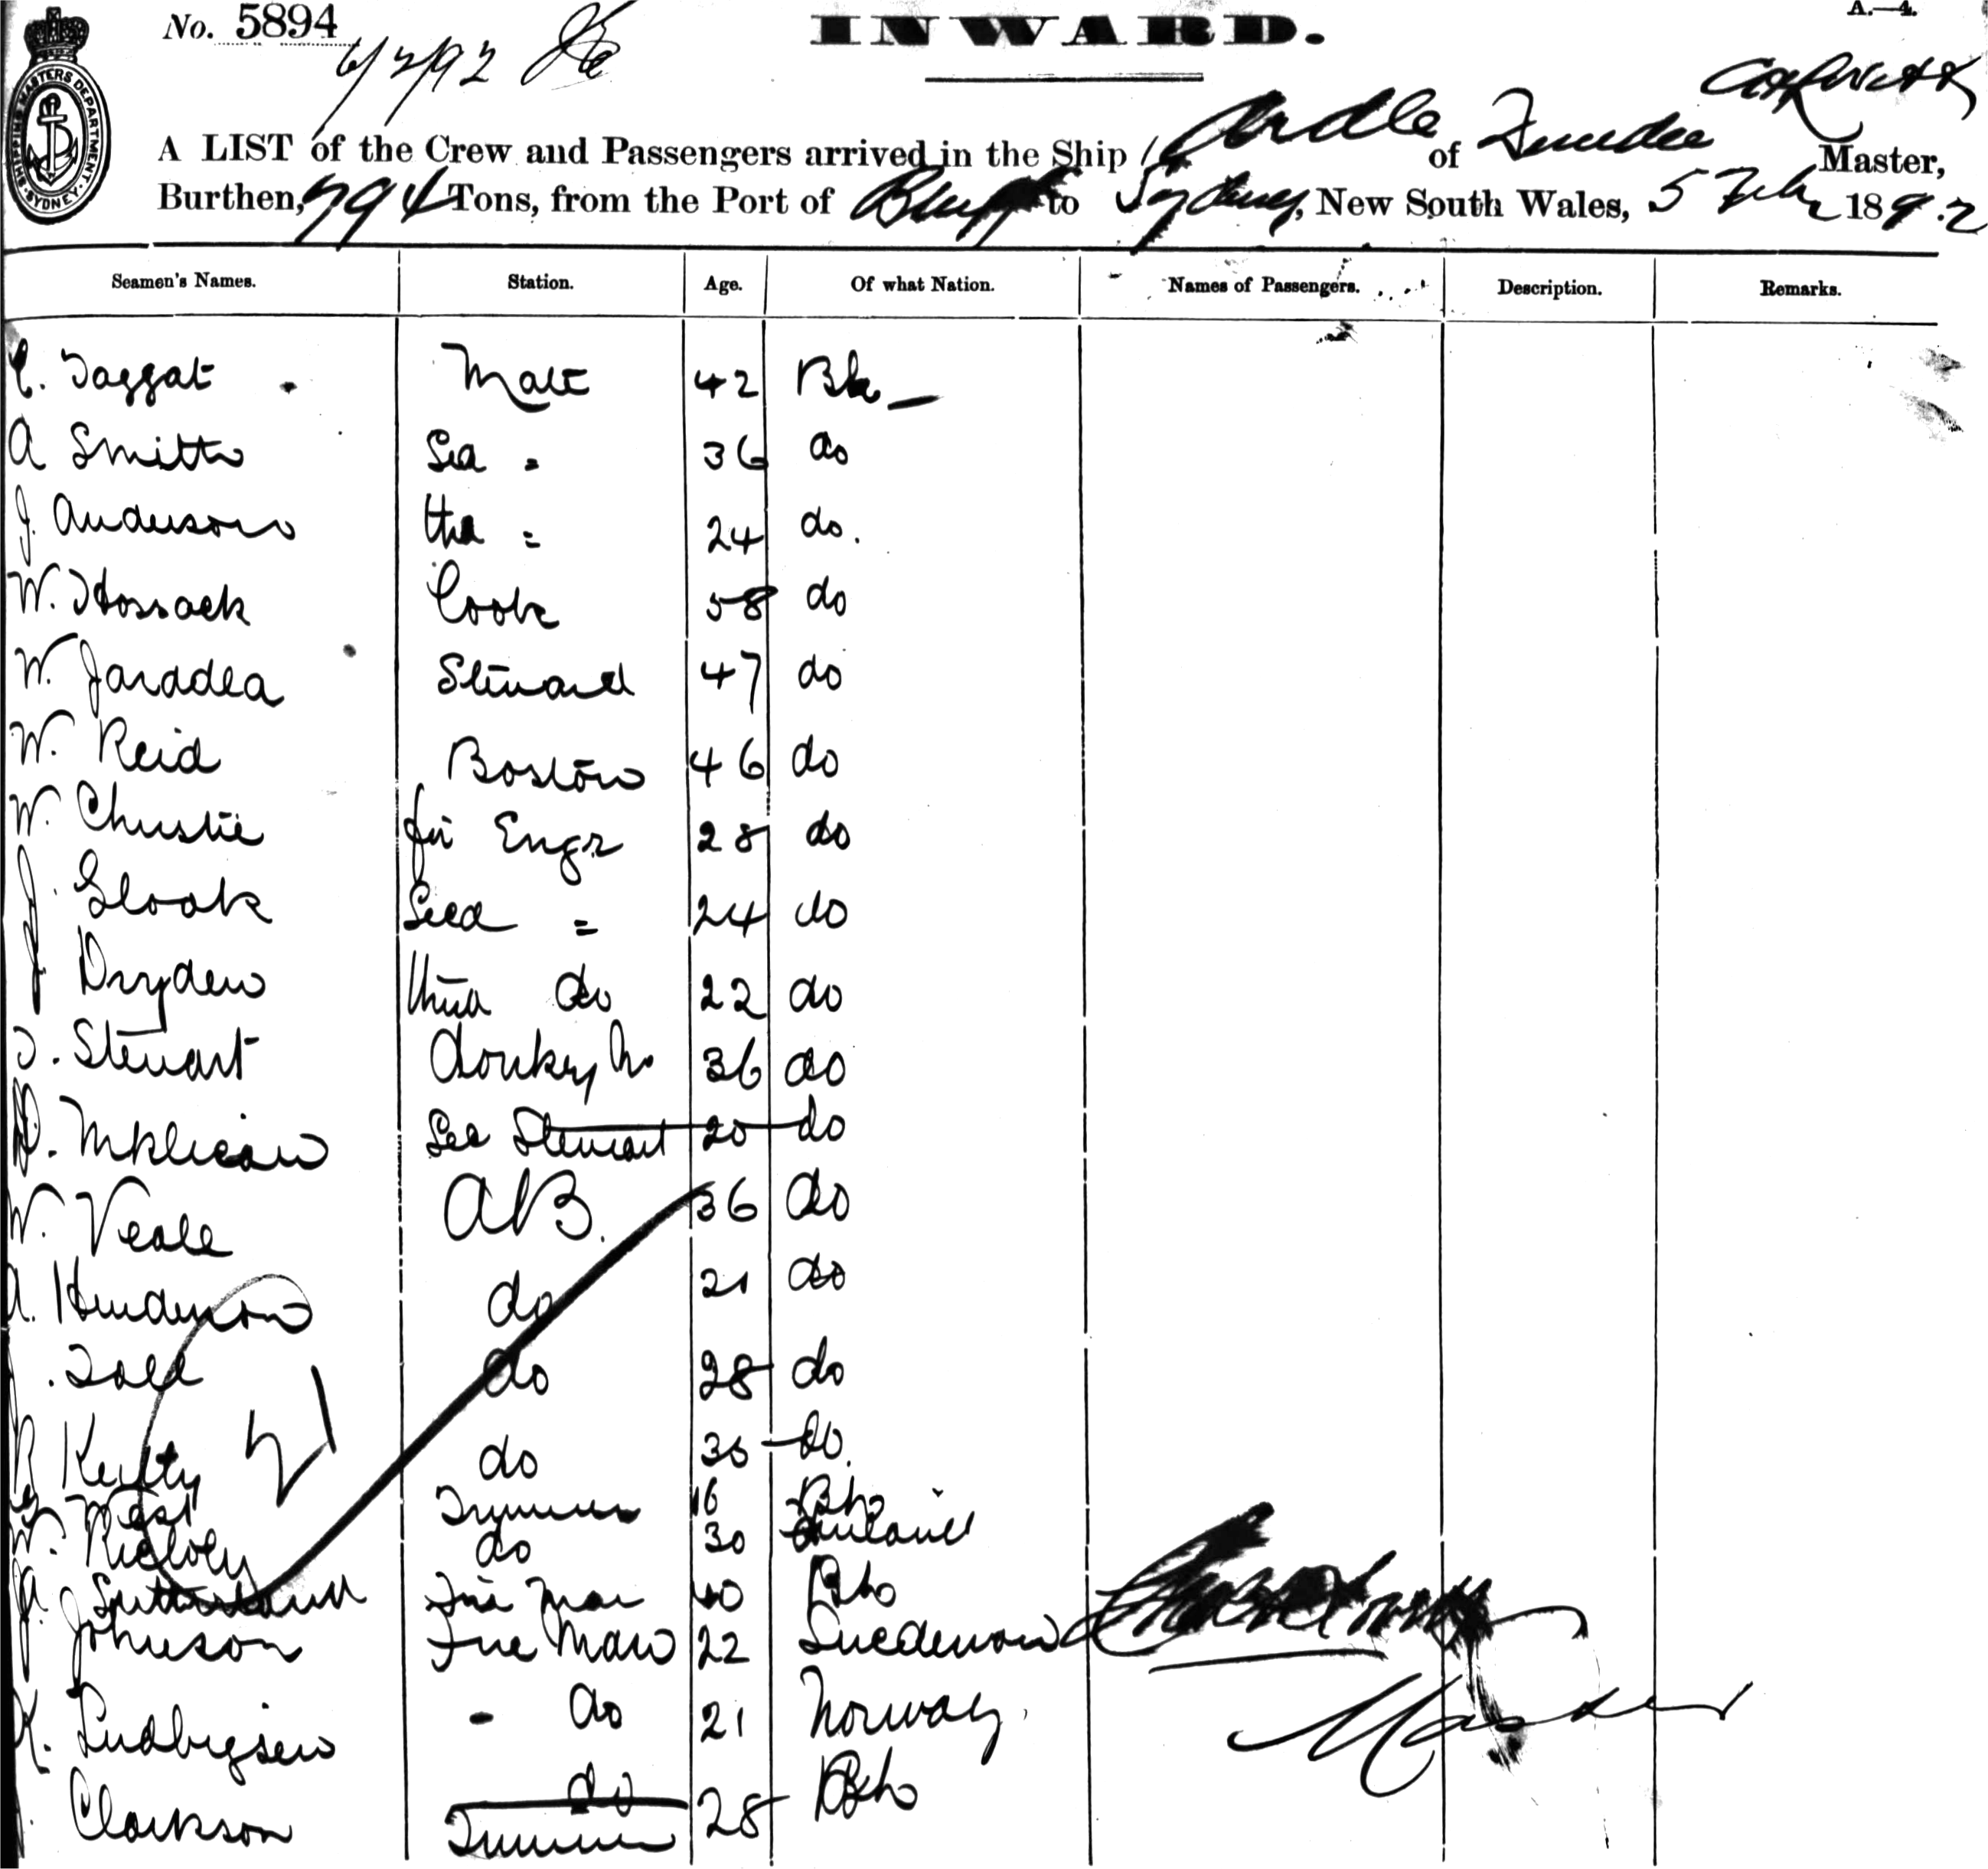 No. 5894
6/2/92
INWARD.
A.—4.
SHIPPING MASTERS DEPARTMENT. SYDNEY.
A LIST of the Crew and Passengers arrived in the Ship Ardle of Dundee Master,
Burthen, 794 Tons, from the Port of Bluff to Sydney, New South Wales, 5 Feby 1892
Seamen's Names. Station. Age. Of what Nation. Names of Passengers. Description. Remarks.
C. Taggat Mate 42 Bh
A Smith Sea " 36 do
J. Anderson thd = 24 do.
W. Hossack Cook 58 do
W. Steward 47 do
W. Reid Boston 46 do
W. Christie fir Engr 28 do
J. Glook Secd = 24 do
J Dryden third do 22 do
J. Stewart donkey m 36 do
D. See Stewart 20 do
W. Veale AB. 36 do
A. Henderson do 21 do
J. Todd do 28 do
R do 30 do.
West Trimmer 16 Bh
W. do 30
Sutherland Fire Man 40 Bh
J. Johnson Fire Man 22
K. Ludbigsen - do 21 Norway
Clarkson do Trimmer 28 Bh
21
Master